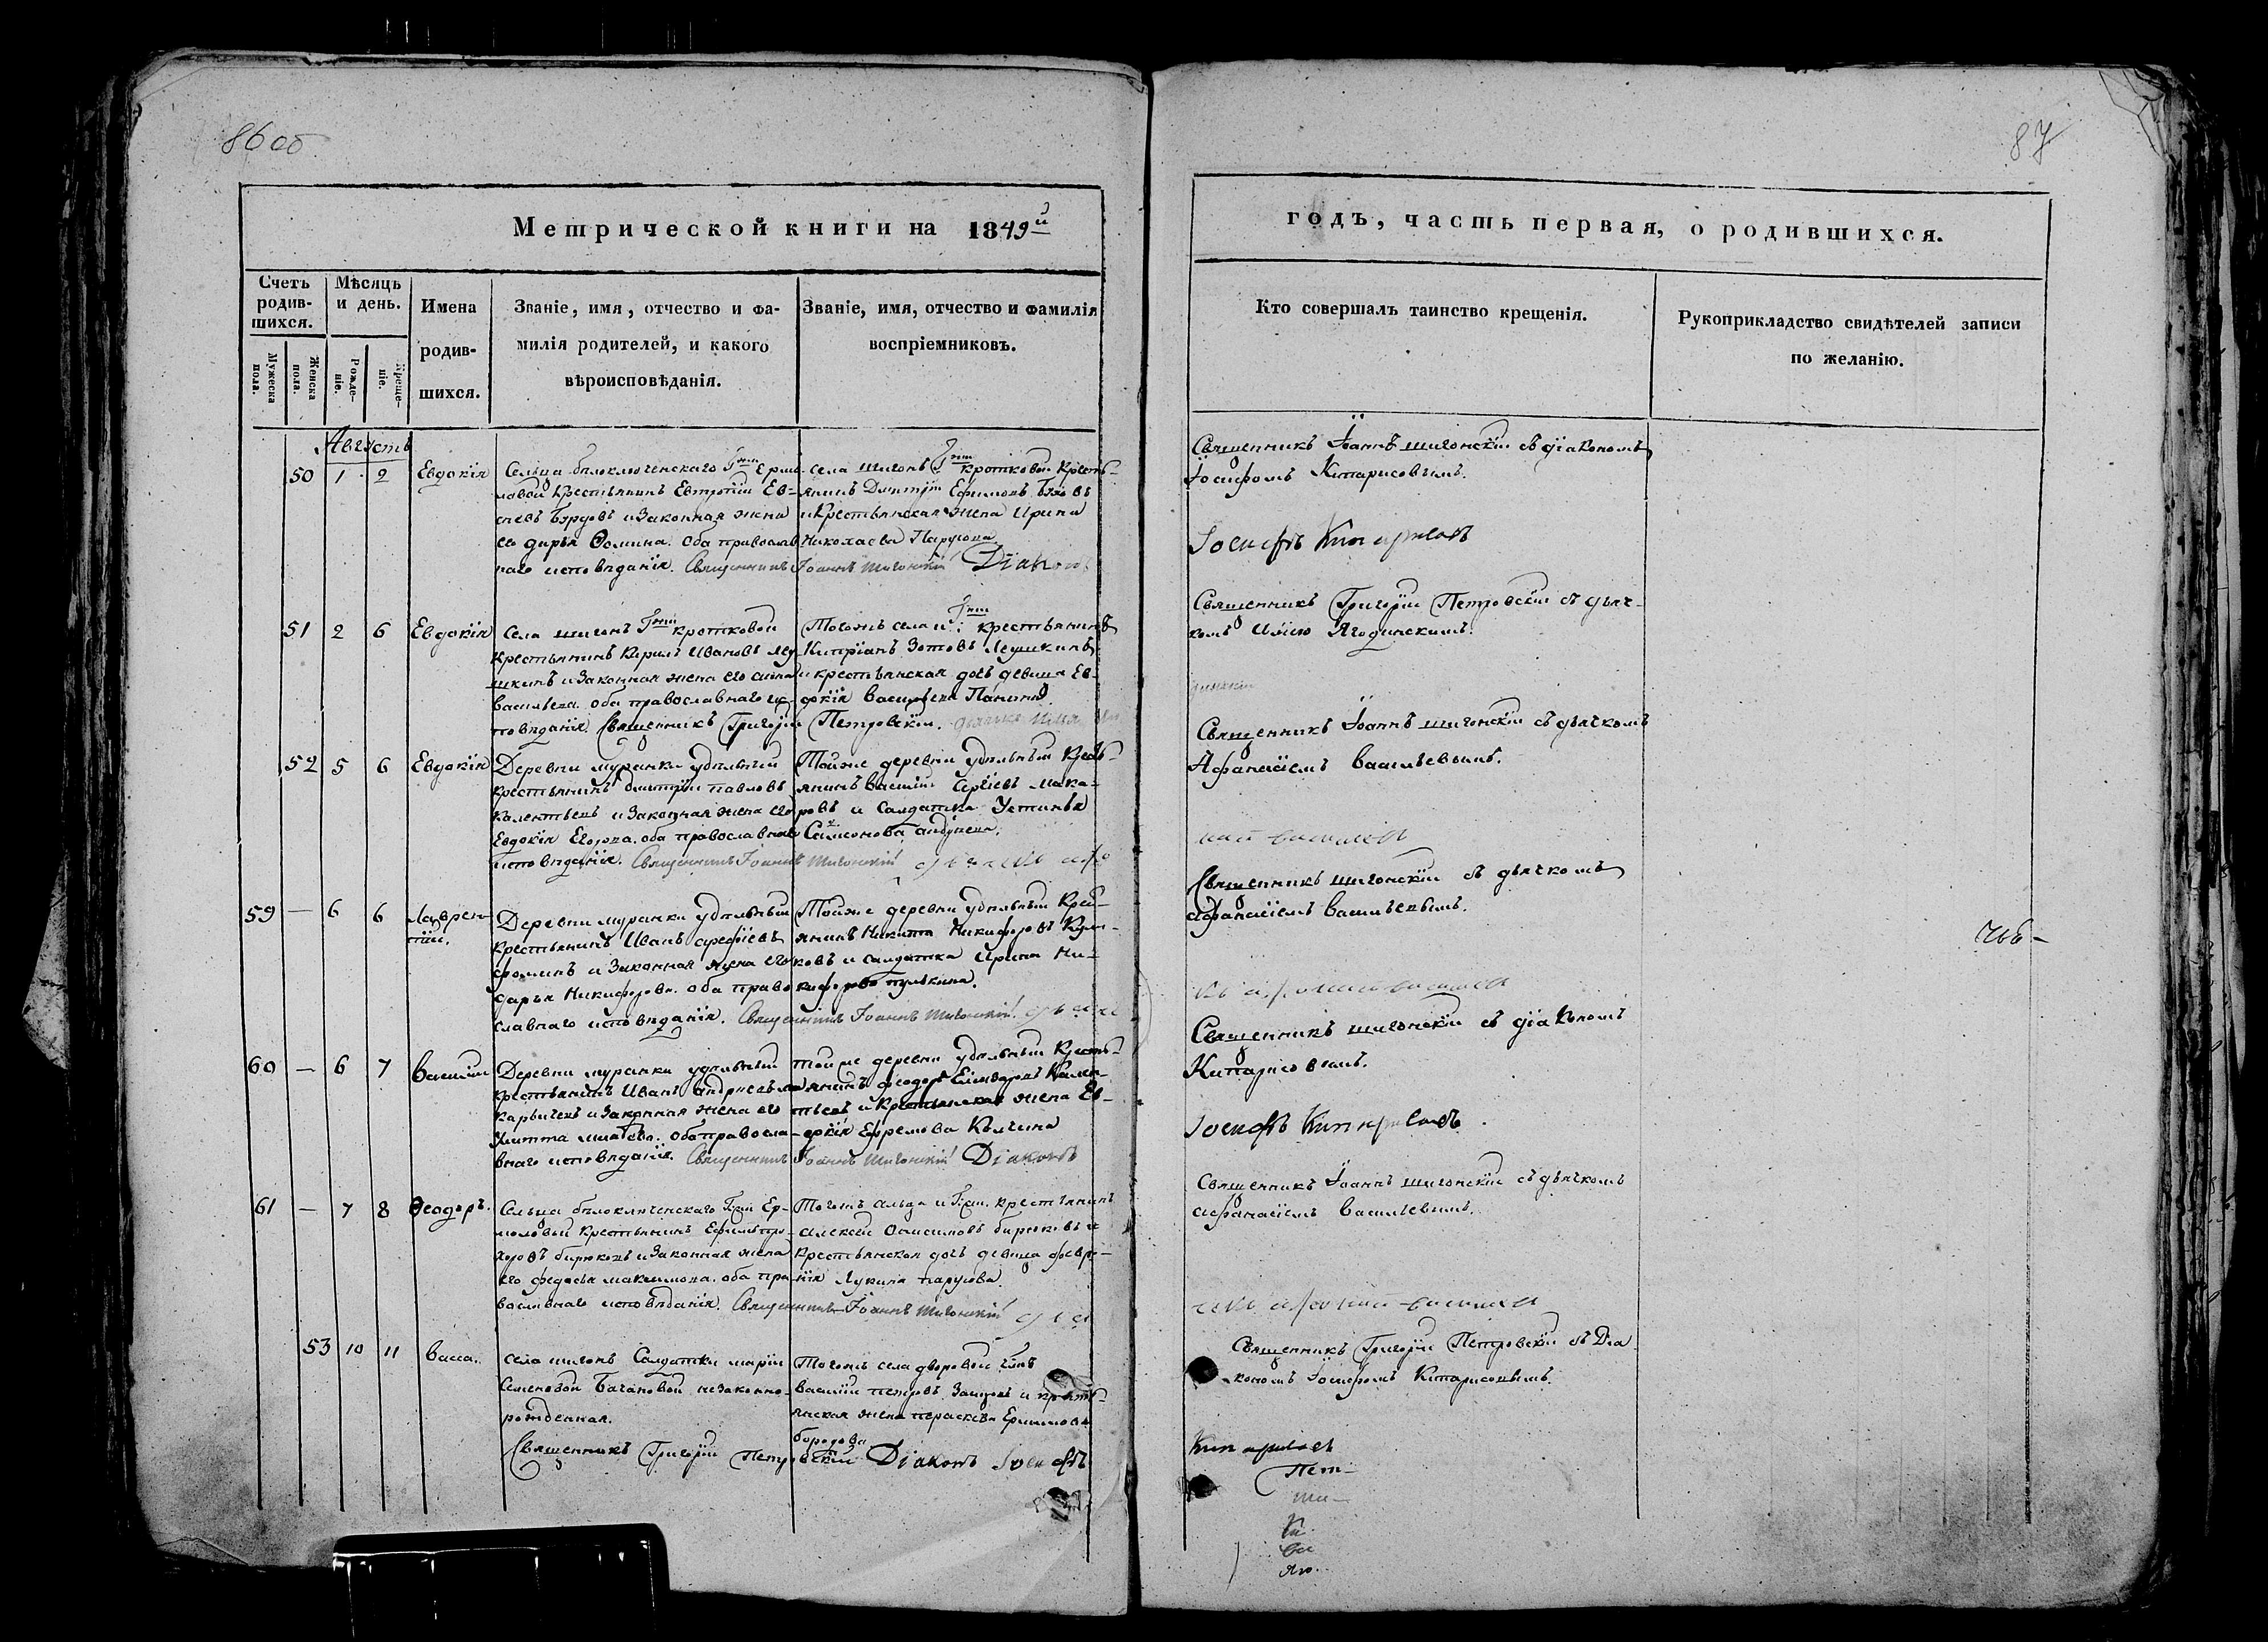 86 об
87
Метрической книги на 1849й
годъ, часть первая, о родившихся.
Счетъ родив-шихся.
Мѣсяцъ и день.
Имена родив-шихся.
Званіе, имя, отчество и фа-
милія родителей, и какого
вѣроисповѣданія.
Званіе, имя, отчество и фамилія
воспріемниковъ.
Мужеска пола.
Женска пола.
Рожде-ніе.
Креще-ніе.
Кто совершалъ таинство крещенія.
Рукоприкладство свидѣтелей записи
по желанію.
Августъ
50 1 2 Евдокія
Сельца белоключенскаго Гжи Ермо-
ловой крестьянинъ Евтропій Ев-
сѣевъ и Законная жена
его дарья Ѳомина. оба православ-
наго исповѣданія. Священникъ Іоаннъ Шигонскій Діаконъ
села шигонъ Гжи кротковой Кресть-
янинъ Дмитрій Ефимовъ
и Крестьянская жена Ирина
Николаева
Священникъ Іоаннъ шигонскій съ діакономъ
Іосифомъ Кипарисовымъ.
Іосифъ Кипарисовъ
51 2 6 Евдокія
Села шигонъ Гжи кротковой
крестьянинъ Кирилъ Ивановъ Лу-
шкинъ и Законная жена его анна
васильева. оба православнаго ис-
повѣданія. Священникъ Григорій Петровскій.
Тогожъ села и Гжи крестьянинъ
Кипріанъ Зотовъ
и крестьянская дочь девица Ев-
докія васильева Панина.
Священникъ Григорій Петровскій съ дьяч-
комъ Иліею Ягодинскимъ.
52 5 6 Евдокія
Деревни муранки удѣльный
крестьянинъ дмитрій павловъ
Калентьевъ и Законная жена его
Евдокія Егорова. оба православнаго
исповѣданія. Священникъ Іоаннъ Шигонскій
Тойже деревни удѣльный Кресть-
янинъ василій Сергіевъ мака-
ровъ и Салдатка Устинья
Самсонова
Священникъ Іоаннъ шигонскій съ дьячкомъ
Афанасіемъ васильевымъ.
59 — 6 6 Лаврен-
тій.
Деревни муранки удѣльный
крестьянинъ Иванъ арефіевъ
фоминъ и Законная жена его
дарья Никифорова. оба право
славнаго исповѣданія. Священникъ Іоаннъ Шигонскій
Тойже деревни удѣльный Крес-
янинъ Никита Никифоровъ
и салдатка Ирина Ни-
кифорова пулькина.
Священникъ шигонскій съ дьячкомъ
афанасіемъ васильевымъ.
60 — 6 7 Василій
Деревни муранки удѣльный
крестьянинъ Иванъ андреевъ ма
карычевъ и Законная жена его
оба правосла-
внаго исповѣданія. Священникъ Іоаннъ Шигонскій Діаконъ
тойже деревни удѣльный Кресть-
янинъ феодоръ Кален-
тьевъ и Крестьянская жена Ев-
докія Ефремова Колчина
Священникъ шигонскій съ діакономъ
Кипарисовымъ.
Іосифъ Кипарисовъ
61 — 7 8 Ѳеодоръ.
Сельца белоключенскаго Гжи Ер-
моловой Крестьянинъ Ефимъ про-
хоровъ бирюковъ и Законная жена
его федосья максимова. оба пра-
вославнаго исповѣданія. Священникъ Іоаннъ Шигонскій
Тогожъ сельца и Гжи. крестьянинъ
алексей бирюковъ и
Крестьянская дочь девица февро-
нія Лукина
Священникъ Іоаннъ шигонскій съ дьячкомъ
афанасіемъ васильевымъ.
53 10 11 Васса.
села шигонъ Салдатки маріи
Семеновой Бачановой незаконно-
рожденная.
Священникъ Григорій Петровскій Діаконъ Іосифъ
Тогожъ села дворовой Гжи
василій петровъ и кресть-
янская жена параскева
бородова
Священникъ Григорій Петровскій съ Діа
кономъ Іосифомъ Кипарисовымъ.
Кипарисовъ
Пет-
Ши-
Ки.
Ва
Яго.